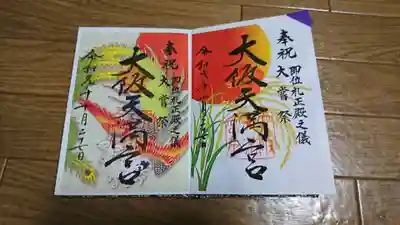 奉祝 即位礼正殿之儀
大嘗祭
大阪天満宮
令和元年十一月
奉祝 即位礼正殿之儀
大嘗祭
大阪天満宮
令和元年十一月